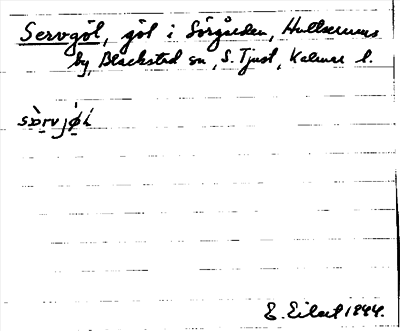 Servgöl, göl i Sörgården, Hullserums
by, Blackstad sn, S. Tjust, Kalmar l.
sɔ̀rvjø̀l
E. Eilert 1944.